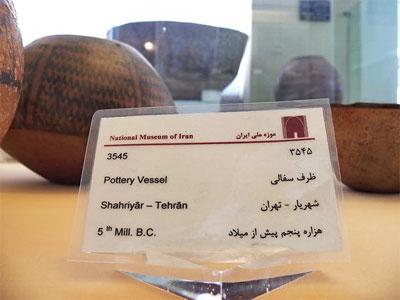 National Museum of Iran موزه ملی ایران
3545 ۳۵۴۵
Pottery Vessel ظرف سفالی
Shahriyār – Tehrān شهریار - تهران
5 th Mill. B.C. هزاره پنجم پیش از میلاد